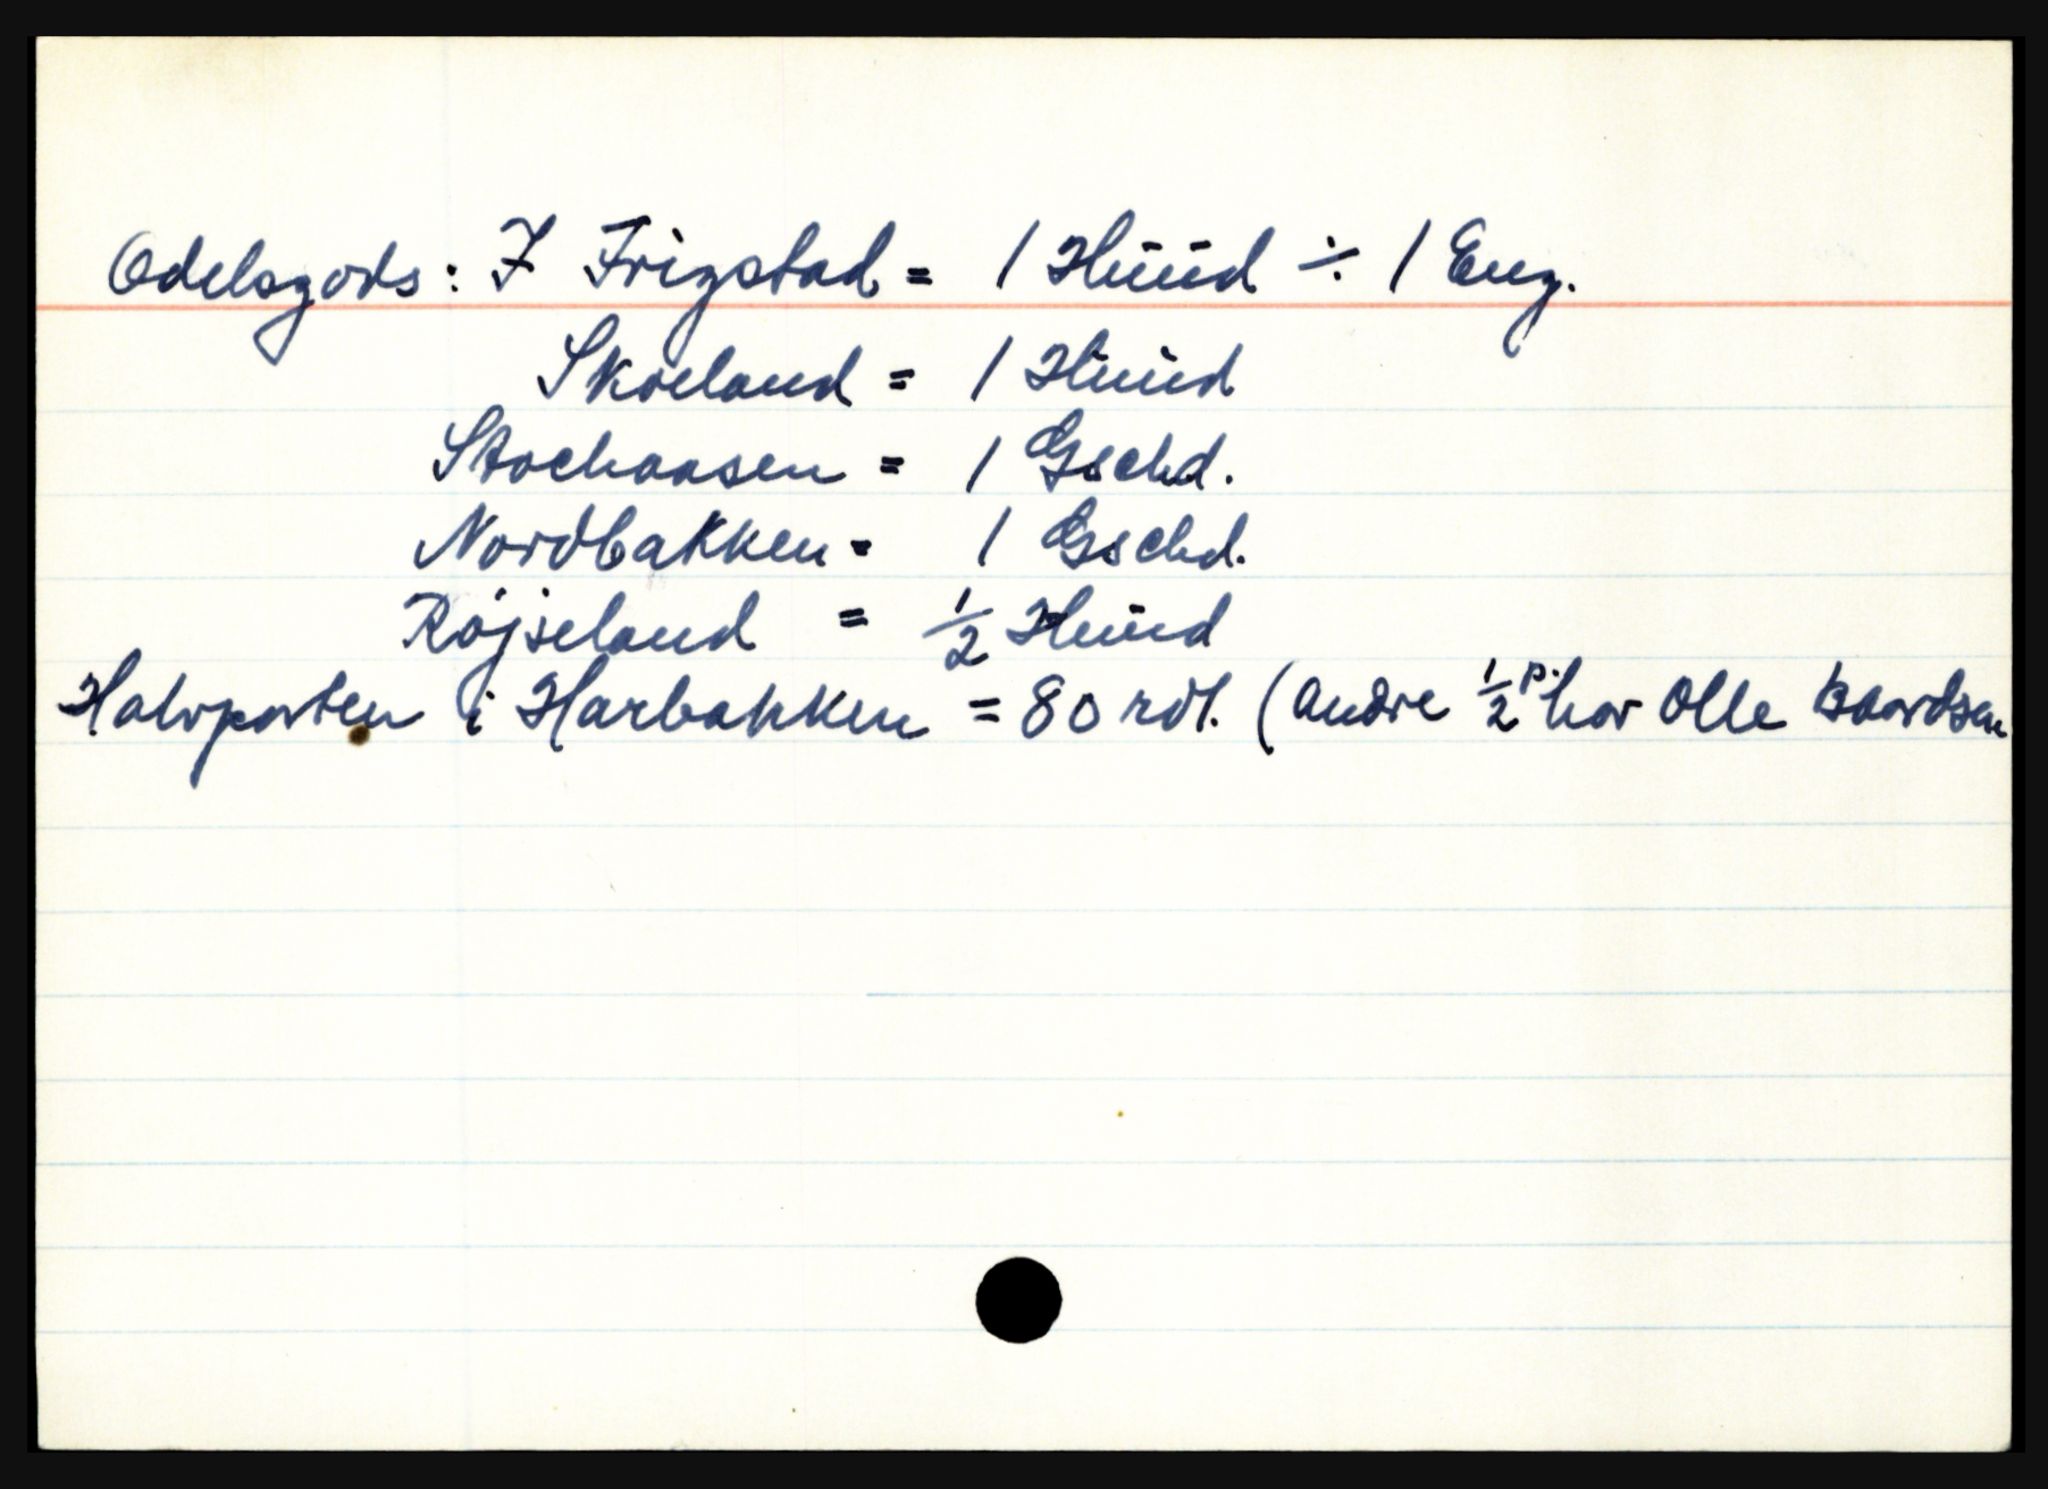 Odelsgods: I Frigstad = 1 Hüüd ÷ 1 Eng.
Skoeland = 1 Huud
Stochaasen = 1 Gschd.
Nordbakken = 1 Gschd.
Røjseland = ½ Huud
Halvparten i Harbakken = 80 rdl. (andre ½ p. har Olle Baardsen